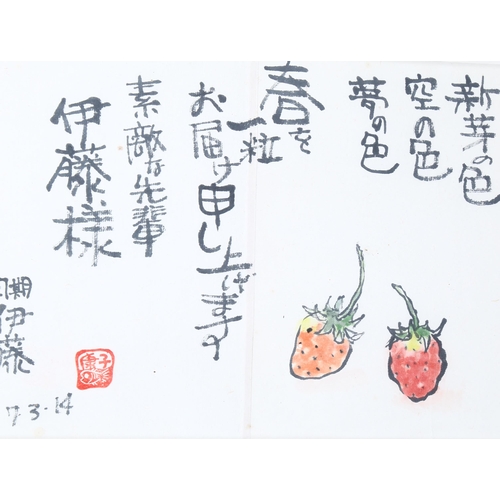 新芽の色
空の色
夢の色
春を
一粒
お届け申し上げます
素敵な先輩
伊藤様
伊藤
7.3.14